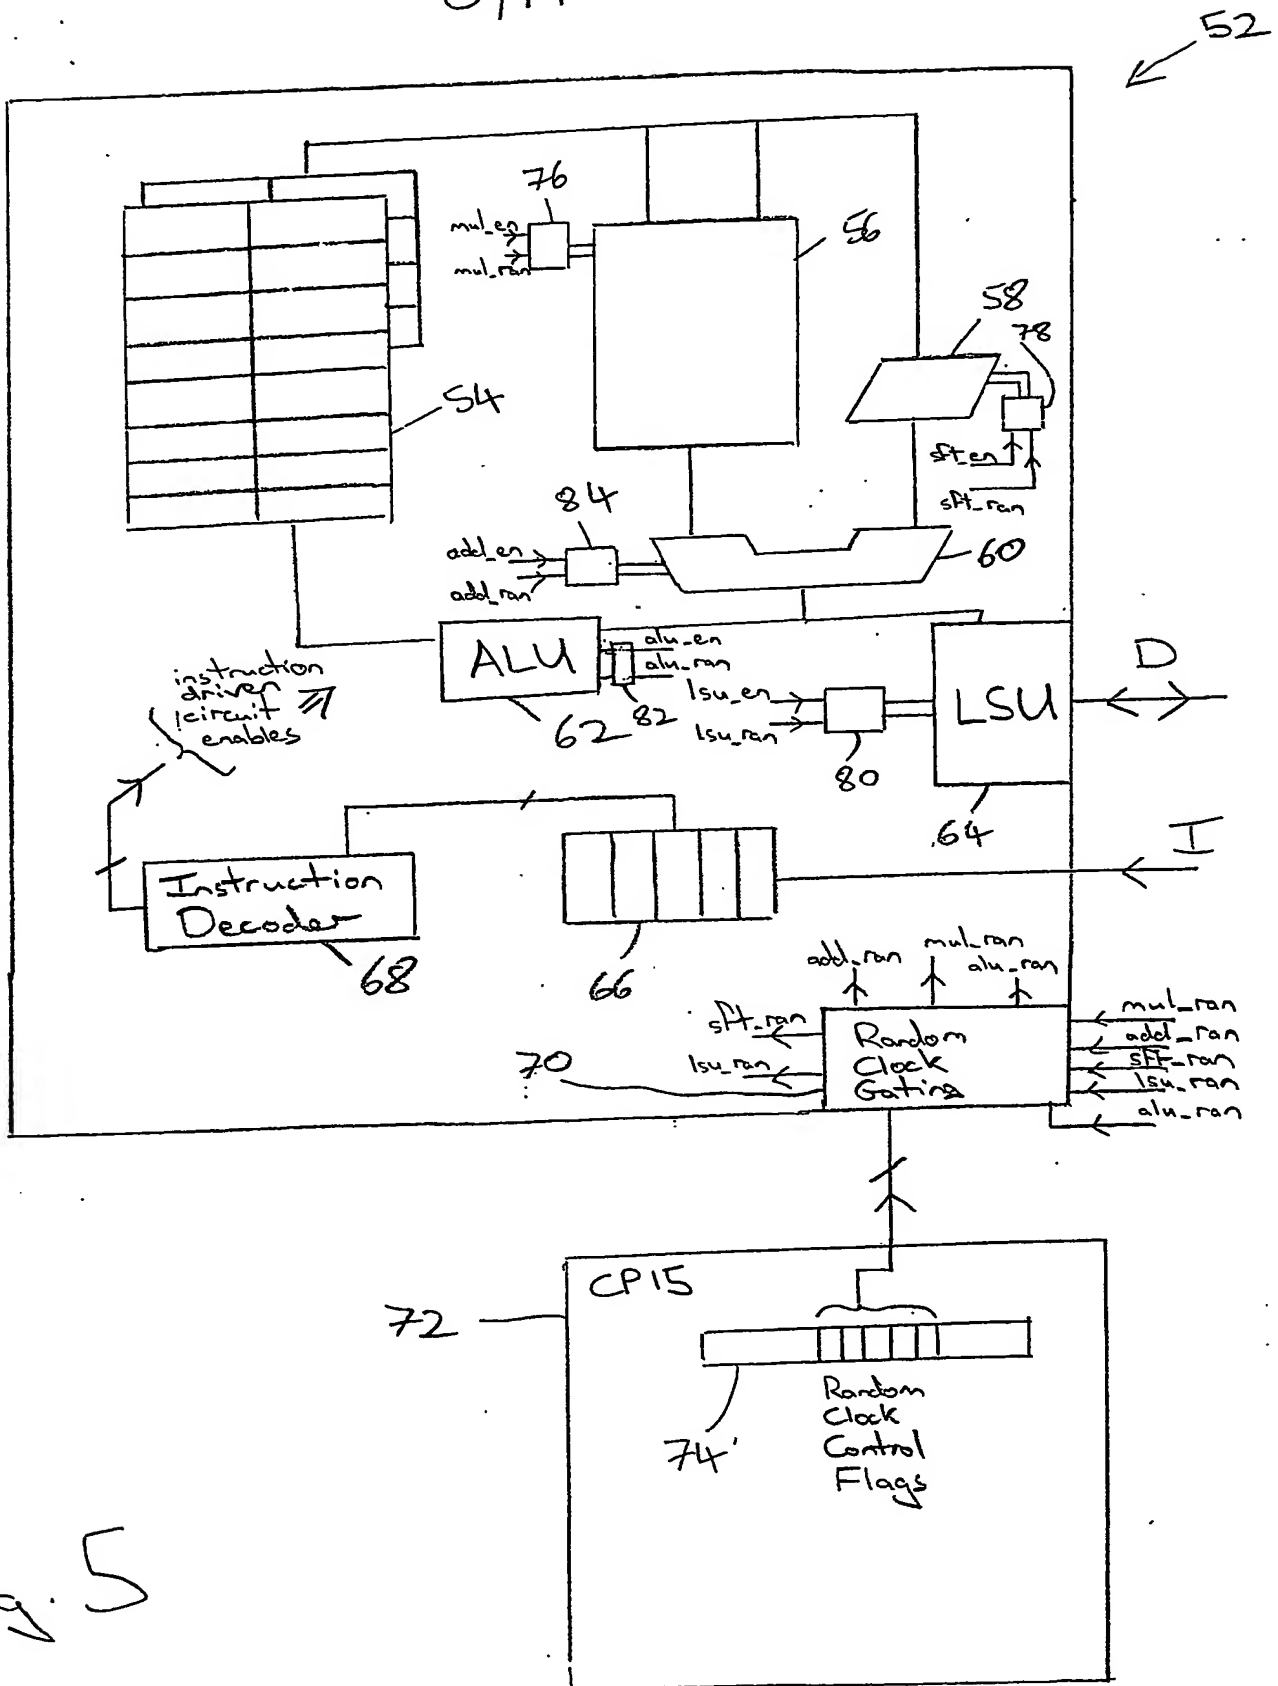 52
76
mul_en
mul_ran
56
58
78
54
sft_en
sft_ran
84
add_en
add_ran
60
ALU
alu_en
alu_ran
62
82
instruction
driver
circuit
enables
lsu_en
lsu_ran
80
LSU
64
D
I
Instruction
Decoder
68
66
add_ran
mul_ran
alu_ran
sft_ran
lsu_ran
70
Random
Clock
Gating
mul_ran
add_ran
sft_ran
lsu_ran
alu_ran
72
CP15
74'
Random
Clock
Control
Flags
5